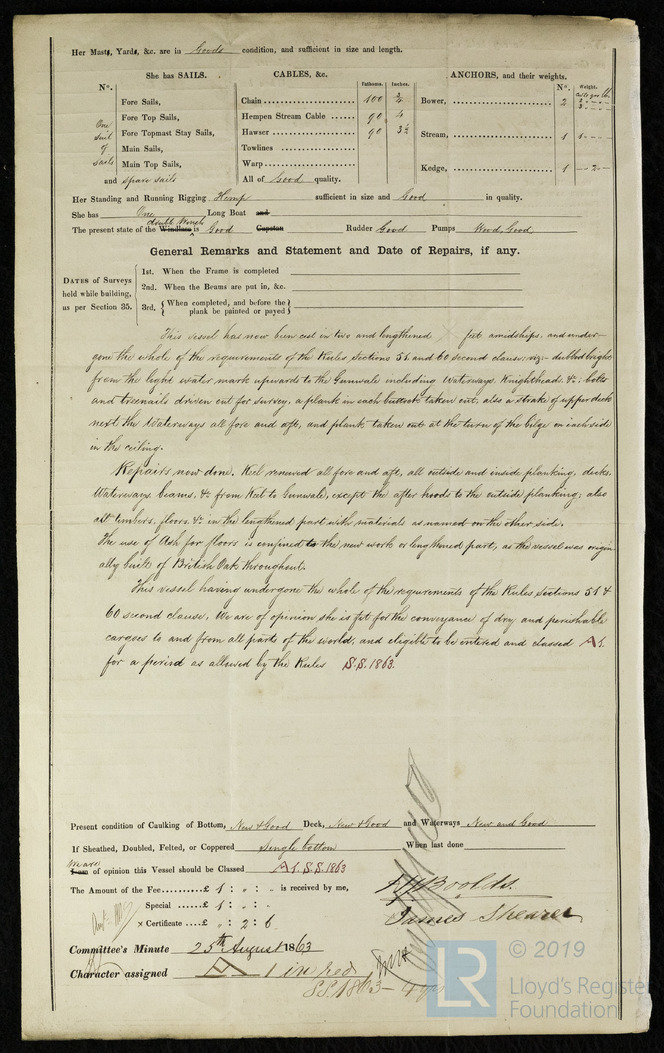 Her Masts, Yards, &c. are in Good condition, and sufficient in size and length.
She has SAILS. CABLES, &c. ANCHORS, and their weights.
N°. Fathoms. Inches. N°. Weight.
Fore Sails, Chain 100 3/4 Bower, 2
Fore Top Sails, Hempen Stream Cable 90 4
Fore Topmast Stay Sails, Hawser 90 3½ Stream, 1 1
Main Sails, Towlines
Main Top Sails, Warp Kedge, 1 - 2 -
One suit of sails and spare sails All of Good quality.
Her Standing and Running Rigging Hemp sufficient in size and Good in quality.
She has One Long Boat and
The present state of the Windlass double Winch is Good Capstan Rudder Good Pumps Wood, Good
General Remarks and Statement and Date of Repairs, if any.
DATES of Surveys held while building, as per Section 35.
1st. When the Frame is completed
2nd. When the Beams are put in, &c.
3rd. { When completed, and before the plank be painted or payed }
This vessel has now been cut in two and lengthened X feet amidships, and under-
gone the whole of the requirements of the Rules, Sections 51 and 60 second clause, viz:- dubbed bright
from the light water mark upwards to the Gunwale including Waterways, Knighthead &c; bolts
and treenails driven out for survey, a plank in each buttock taken out, also a strake of upper deck
next the Waterways all fore and aft, and plank taken out at the turn of the bilge on each side
in the ceiling.
Repairs now done. Keel renewed all fore and aft, all outside and inside planking, decks,
Waterways, beams, &c from Keel to Gunwale, except the after hoods to the outside planking; also
all timbers, floors &c in the lengthened part with materials as named on the other side.
The use of Ash for floors is confined to the new work or lengthened part, as the vessel was origin
ally built of British Oak throughout.
This vessel having undergone the whole of the requirements of the Rules Sections 51 &
60 second clause, We are of opinion she is fit for the conveyance of dry and perishable
cargoes to and from all parts of the world, and eligible to be entered and classed A1.
for a period as allowed by the Rules S.S. 1863.
Present condition of Caulking of Bottom, New & Good Deck, New & Good and Waterways New and Good
If Sheathed, Doubled, Felted, or Coppered Single bottom When last done
We are I am of opinion this Vessel should be Classed A1. S.S. 1863
The Amount of the Fee £ 1 : " : " is received by me,
Special £ " : " : "
× Certificate £ " : 2 : 6
James Shearer
Committee's Minute 25th August 1863
Character assigned A 1 in red
SS. 1863 - 4 yrs
LR
© 2019
Lloyd's Register
Foundation